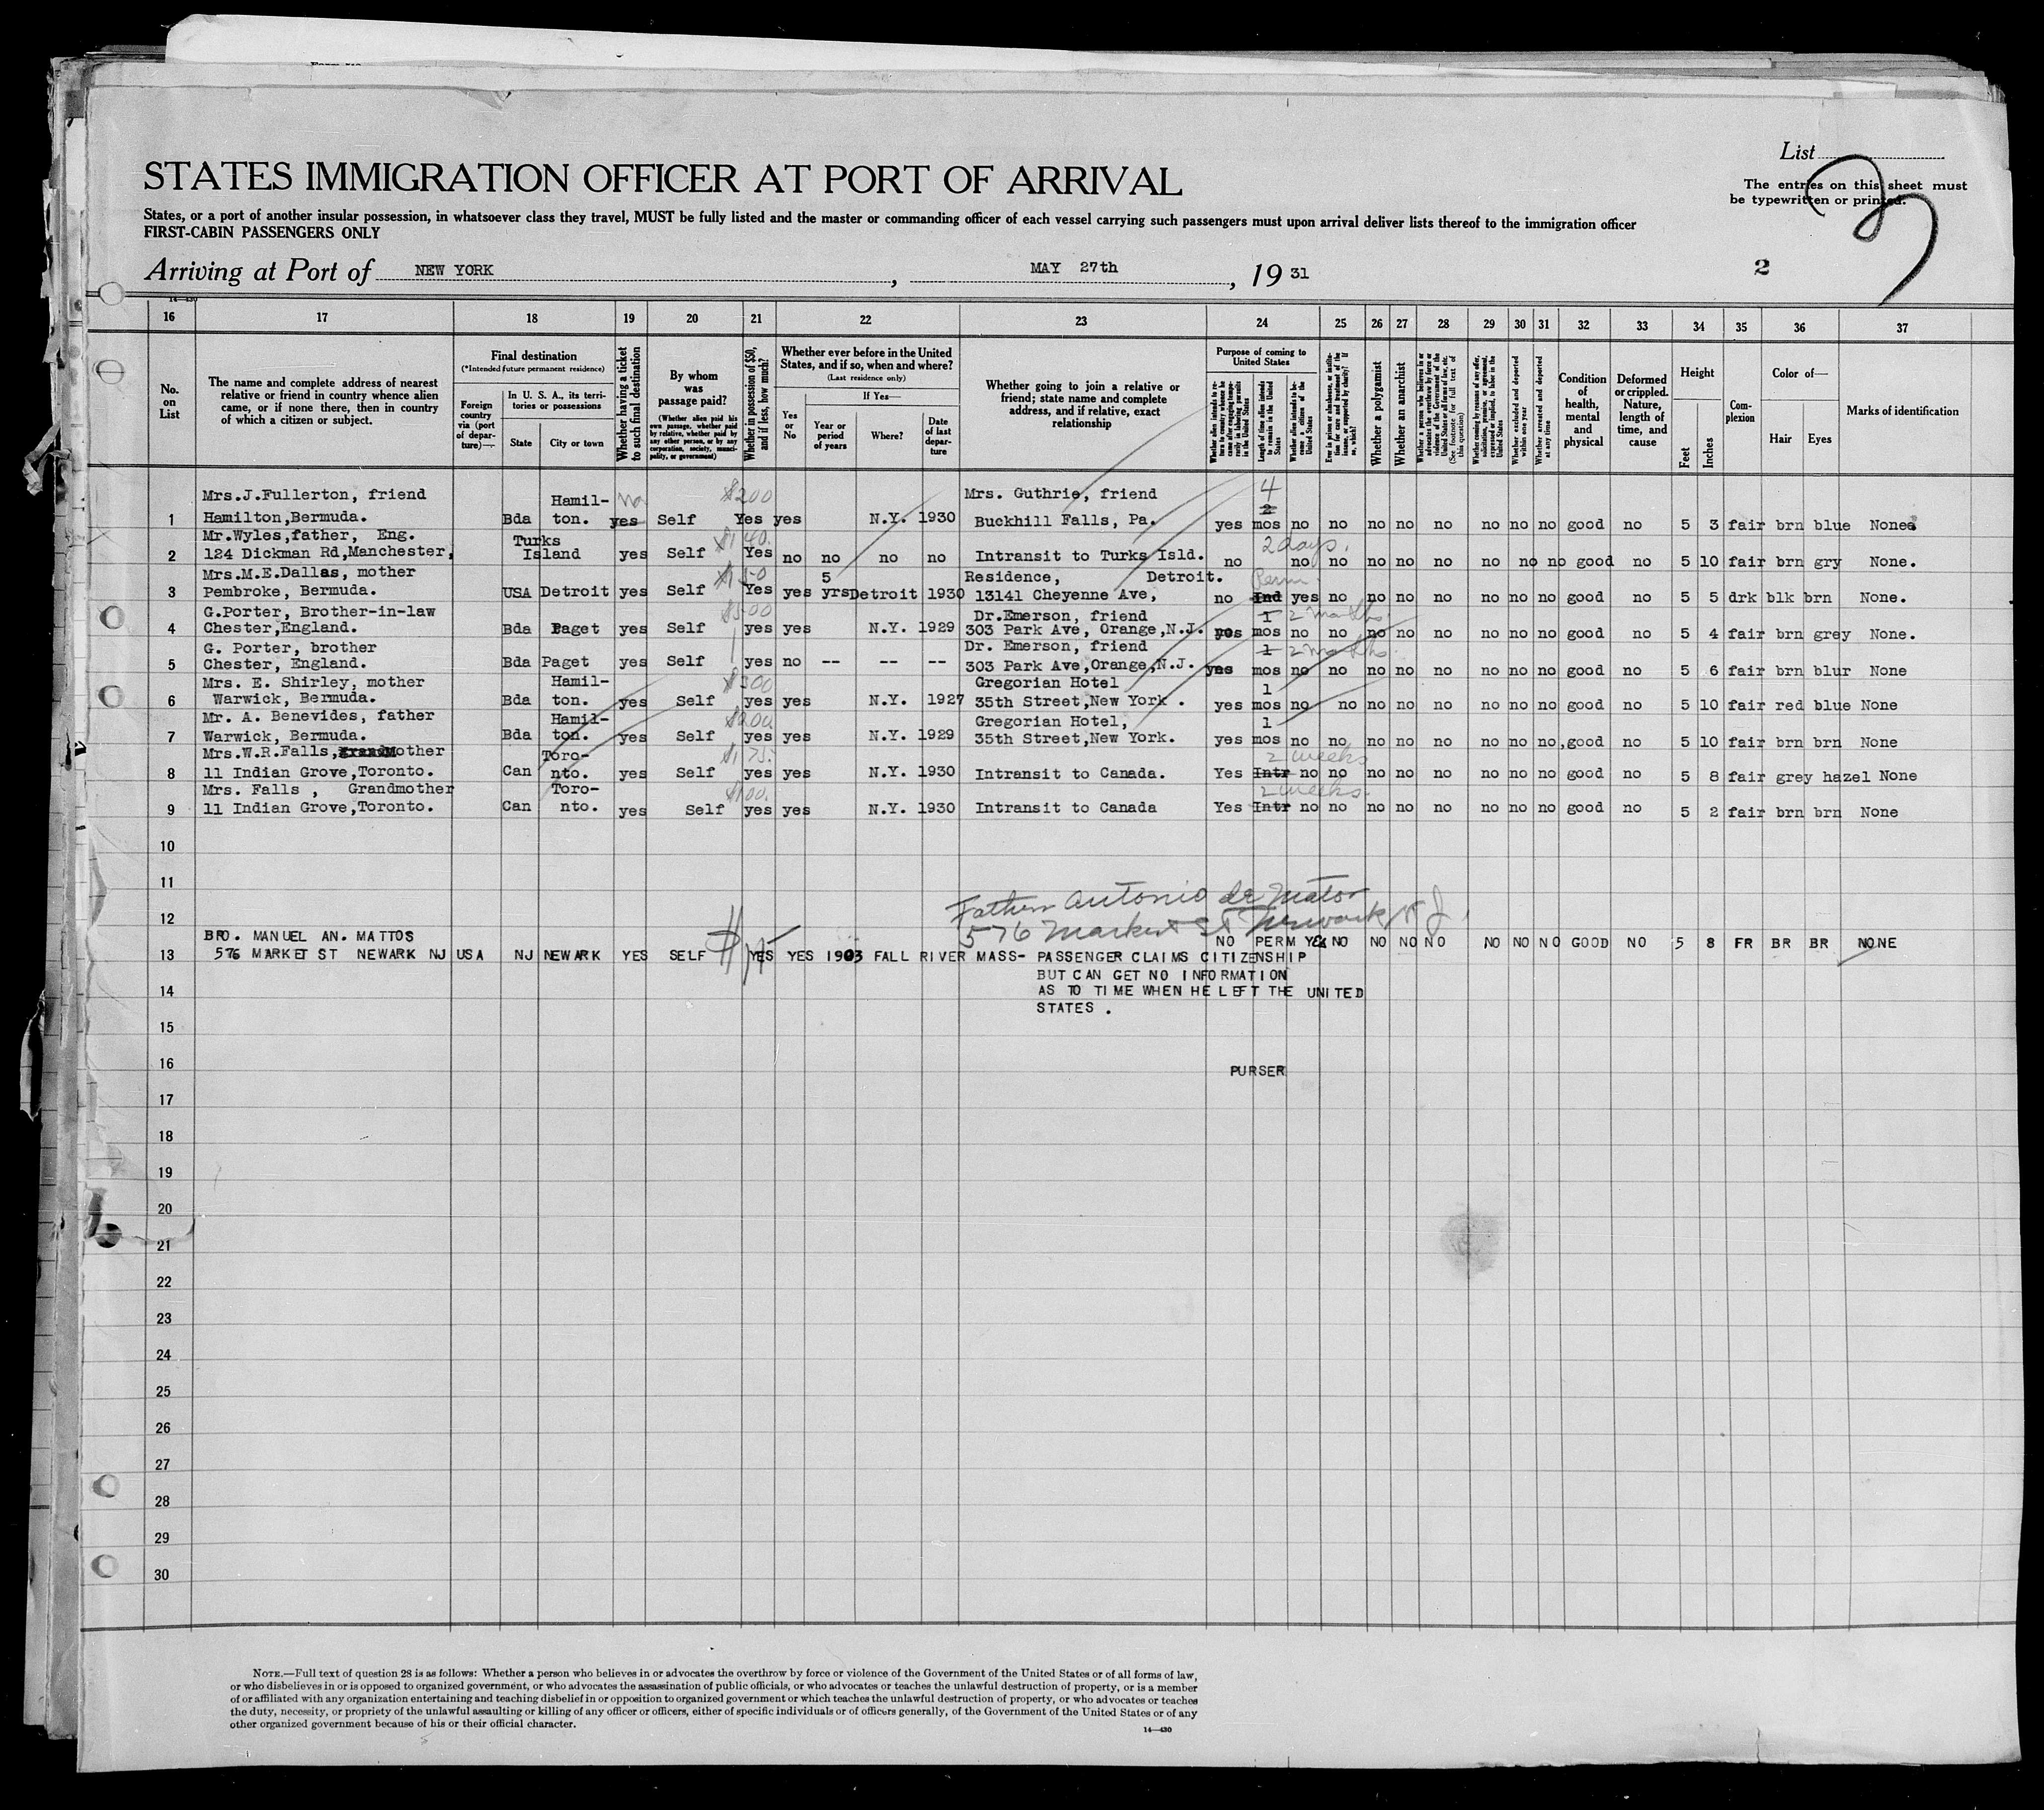 List
STATES IMMIGRATION OFFICER AT PORT OF ARRIVAL
The entries on this sheet must
be typewritten or printed.
States, or a port of another insular possession, in whatsoever class they travel, MUST be fully listed and the master or commanding officer of each vessel carrying such passengers must upon arrival deliver lists thereof to the immigration officer
FIRST-CABIN PASSENGERS ONLY
Arriving at Port of NEW YORK, MAY 27th, 19 31
2
14—430
16 17 18 19 20 21 22 23 24 25 26 27 28 29 30 31 32 33 34 35 36 37
No. on List
The name and complete address of nearest
relative or friend in country whence alien
came, or if none there, then in country
of which a citizen or subject.
Final destination
(*Intended future permanent residence)
Foreign country via (port of departure)—
In U. S. A., its territories or possessions
State
City or town
Whether having a ticket to such final destination
By whom was passage paid?
(Whether alien paid his own passage, whether paid by relative, whether paid by any other person, or by any corporation, society, municipality, or government)
Whether in possession of $50, and if less, how much?
Whether ever before in the United States, and if so, when and where?
(Last residence only)
Yes or No
If Yes—
Year or period of years
Where?
Date of last departure
Whether going to join a relative or
friend; state name and complete
address, and if relative, exact
relationship
Purpose of coming to United States
Length of time alien intends to remain in the United States
Whether alien intends to become a citizen of the United States
Whether a polygamist
Whether an anarchist
Whether excluded and deported within one year
Whether arrested and deported at any time
Condition of health, mental and physical
Deformed or crippled. Nature, length of time, and cause
Height
Feet
Inches
Complexion
Color of—
Hair
Eyes
Marks of identification
Mrs.J.Fullerton, friend Hamil- No $200 Mrs. Guthrie, friend 4
1 Hamilton,Bermuda. Bda ton. yes Self Yes yes N.Y. 1930 Buckhill Falls, Pa. yes 2 mos no no no no no no no no good no 5 3 fair brn blue None
Mr.Wyles,father, Eng. Turks $140. 2 days.
2 124 Dickman Rd,Manchester, Island yes Self Yes no no no no Intransit to Turks Isld. no no no no no no no no no good no 5 10 fair brn gry None.
Mrs.M.E.Dallas, mother $150 5 Residence, Detroit. Perm
3 Pembroke, Bermuda. USA Detroit yes Self Yes yes yrs Detroit 1930 13141 Cheyenne Ave, no Ind yes no no no no no no no good no 5 5 drk blk brn None.
G.Porter, Brother-in-law $500 Dr.Emerson, friend 1 2 months
4 Chester,England. Bda Paget yes Self yes yes N.Y. 1929 303 Park Ave, Orange,N.J. yes mos no no no no no no no no good no 5 4 fair brn grey None.
G. Porter, brother Dr. Emerson, friend 1 2 months.
5 Chester, England. Bda Paget yes Self yes no -- -- -- 303 Park Ave,Orange,N.J. yes mos no no no no no no no no good no 5 6 fair brn blur None
Mrs. E. Shirley, mother Hamil- $300 Gregorian Hotel 1
6 Warwick, Bermuda. Bda ton. yes Self yes yes N.Y. 1927 35th Street,New York . yes mos no no no no no no no no good no 5 10 fair red blue None
Mr. A. Benevides, father Hamil- $200. Gregorian Hotel, 1
7 Warwick, Bermuda. Bda ton. yes Self yes yes N.Y. 1929 35th Street,New York. yes mos no no no no no no no no, good no 5 10 fair brn brn None
Mrs.W.R.Falls, GrandMother Toro- $175. 2 weeks
8 11 Indian Grove,Toronto. Can nto. yes Self yes yes N.Y. 1930 Intransit to Canada. Yes Intr no no no no no no no no good no 5 8 fair grey hazel None
Mrs. Falls , Grandmother Toro- $100. 2 weeks.
9 11 Indian Grove,Toronto. Can nto. yes Self yes yes N.Y. 1930 Intransit to Canada Yes Intr no no no no no no no no good no 5 2 fair brn brn None
10
11
Father Antonio de Matos
12 576 Market St Newark N J.
BRO. MANUEL AN. MATTOS NO PERM YES NO NO NO NO NO NO NO GOOD NO 5 8 FR BR BR NONE
13 576 MARKET ST NEWARK NJ USA NJ NEWARK YES SELF YES YES 1903 FALL RIVER MASS- PASSENGER CLAIMS CITIZENSHIP
BUT CAN GET NO INFORMATION
14 AS TO TIME WHEN HE LEFT THE UNITED
STATES .
15
16
PURSER
17
18
19
20
21
22
23
24
25
26
27
28
29
30
NOTE.—Full text of question 28 is as follows: Whether a person who believes in or advocates the overthrow by force or violence of the Government of the United States or of all forms of law,
or who disbelieves in or is opposed to organized government, or who advocates the assassination of public officials, or who advocates or teaches the unlawful destruction of property, or is a member
of or affiliated with any organization entertaining and teaching disbelief in or opposition to organized government or which teaches the unlawful destruction of property, or who advocates or teaches
the duty, necessity, or propriety of the unlawful assaulting or killing of any officer or officers, either of specific individuals or of officers generally, of the Government of the United States or of any
other organized government because of his or their official character.
14—430